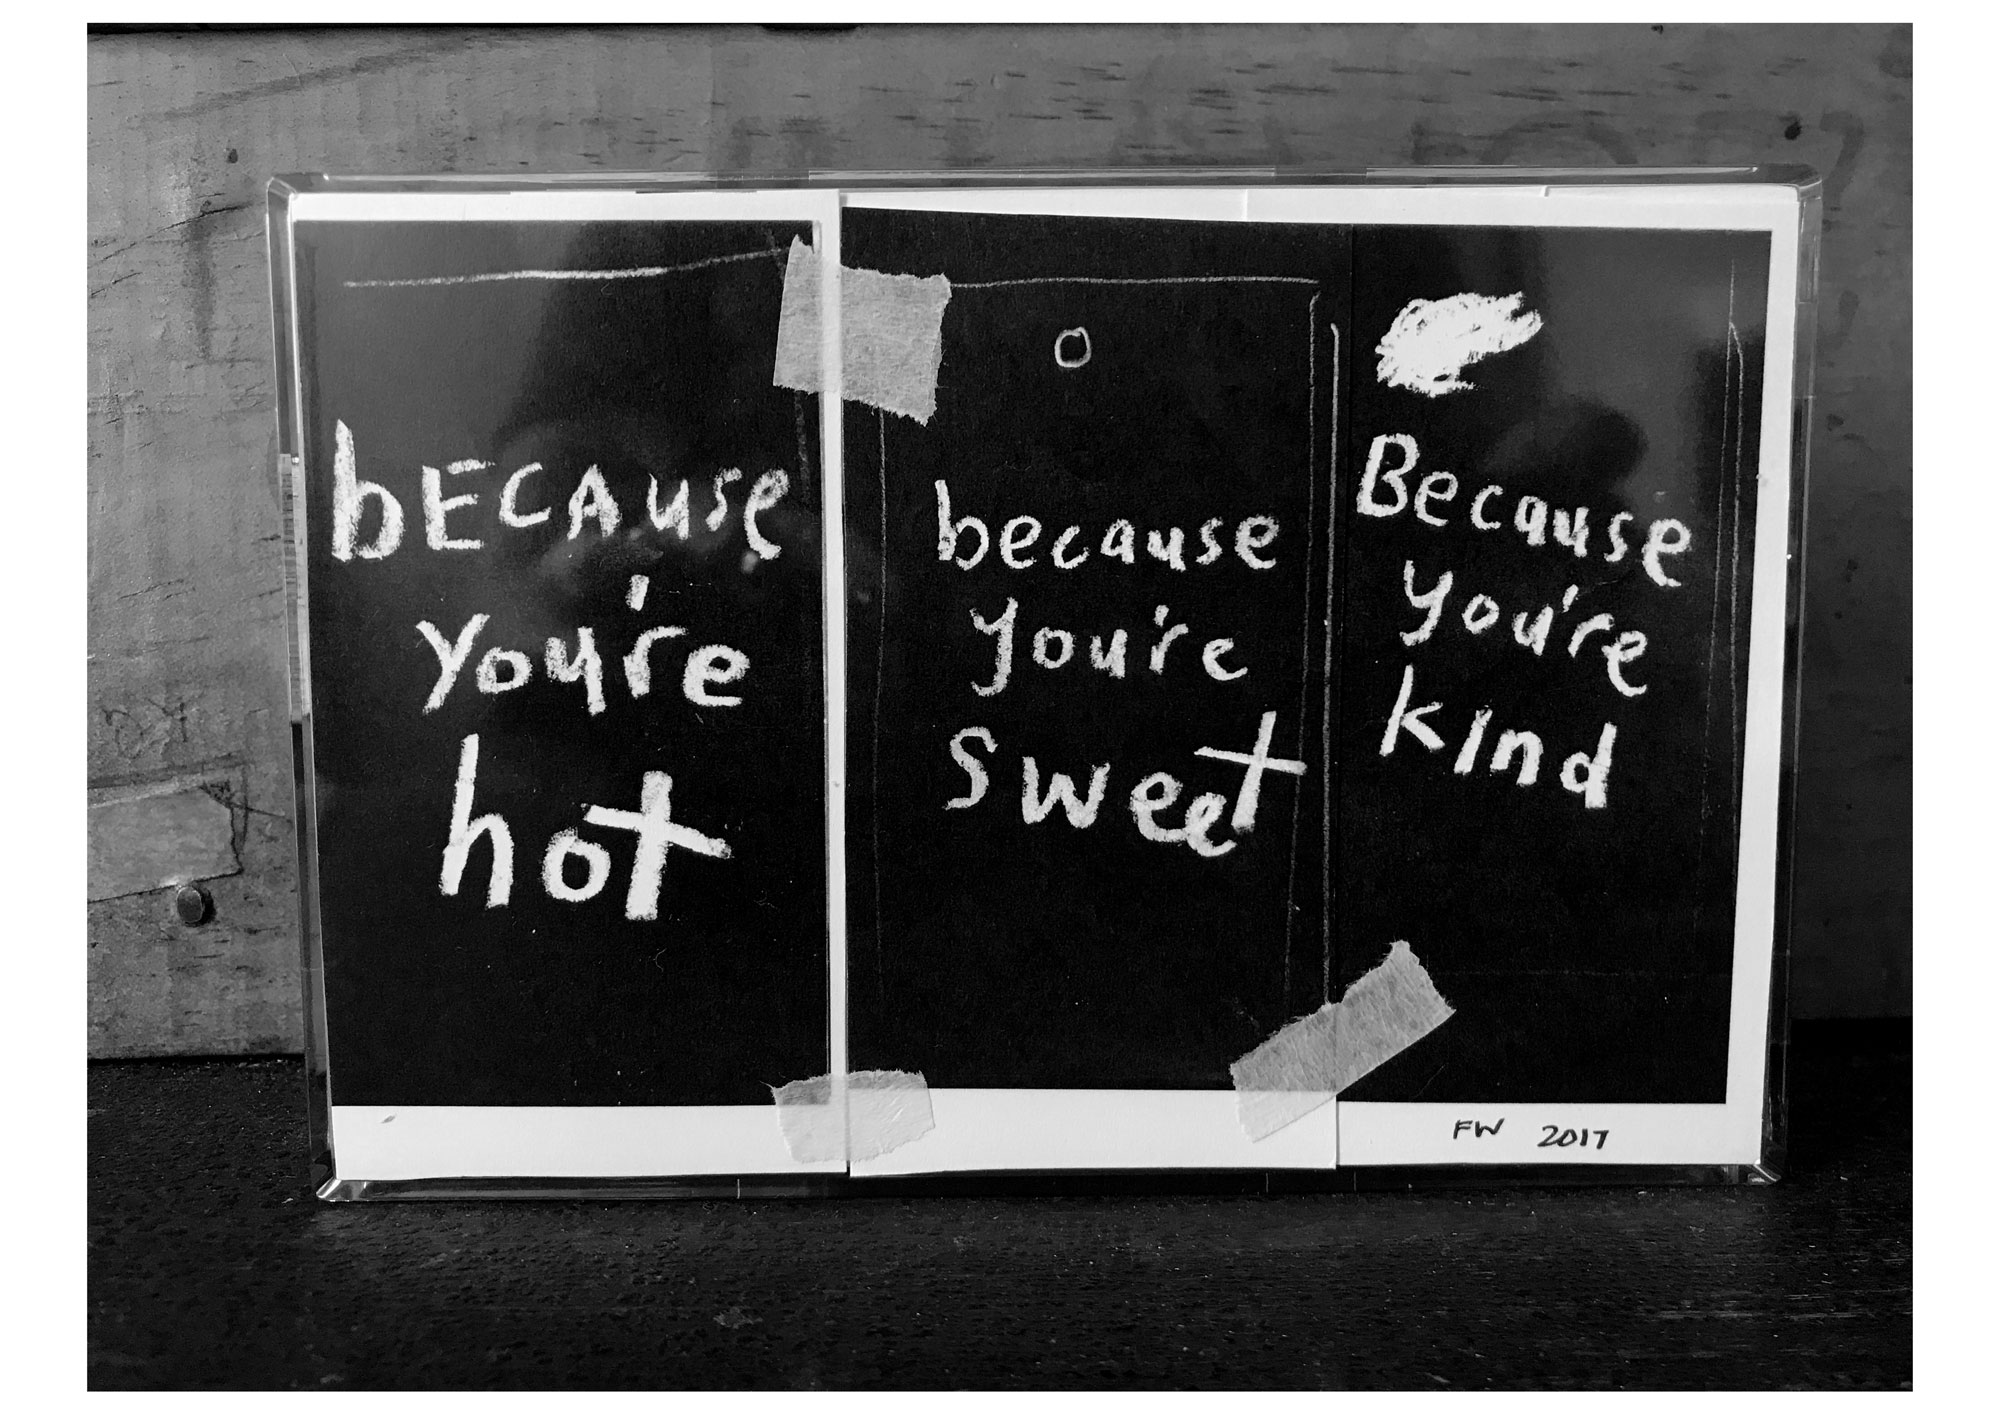 bECAuse
you're
hot
because
you're
sweet
Because
you're
kind
FW 2017